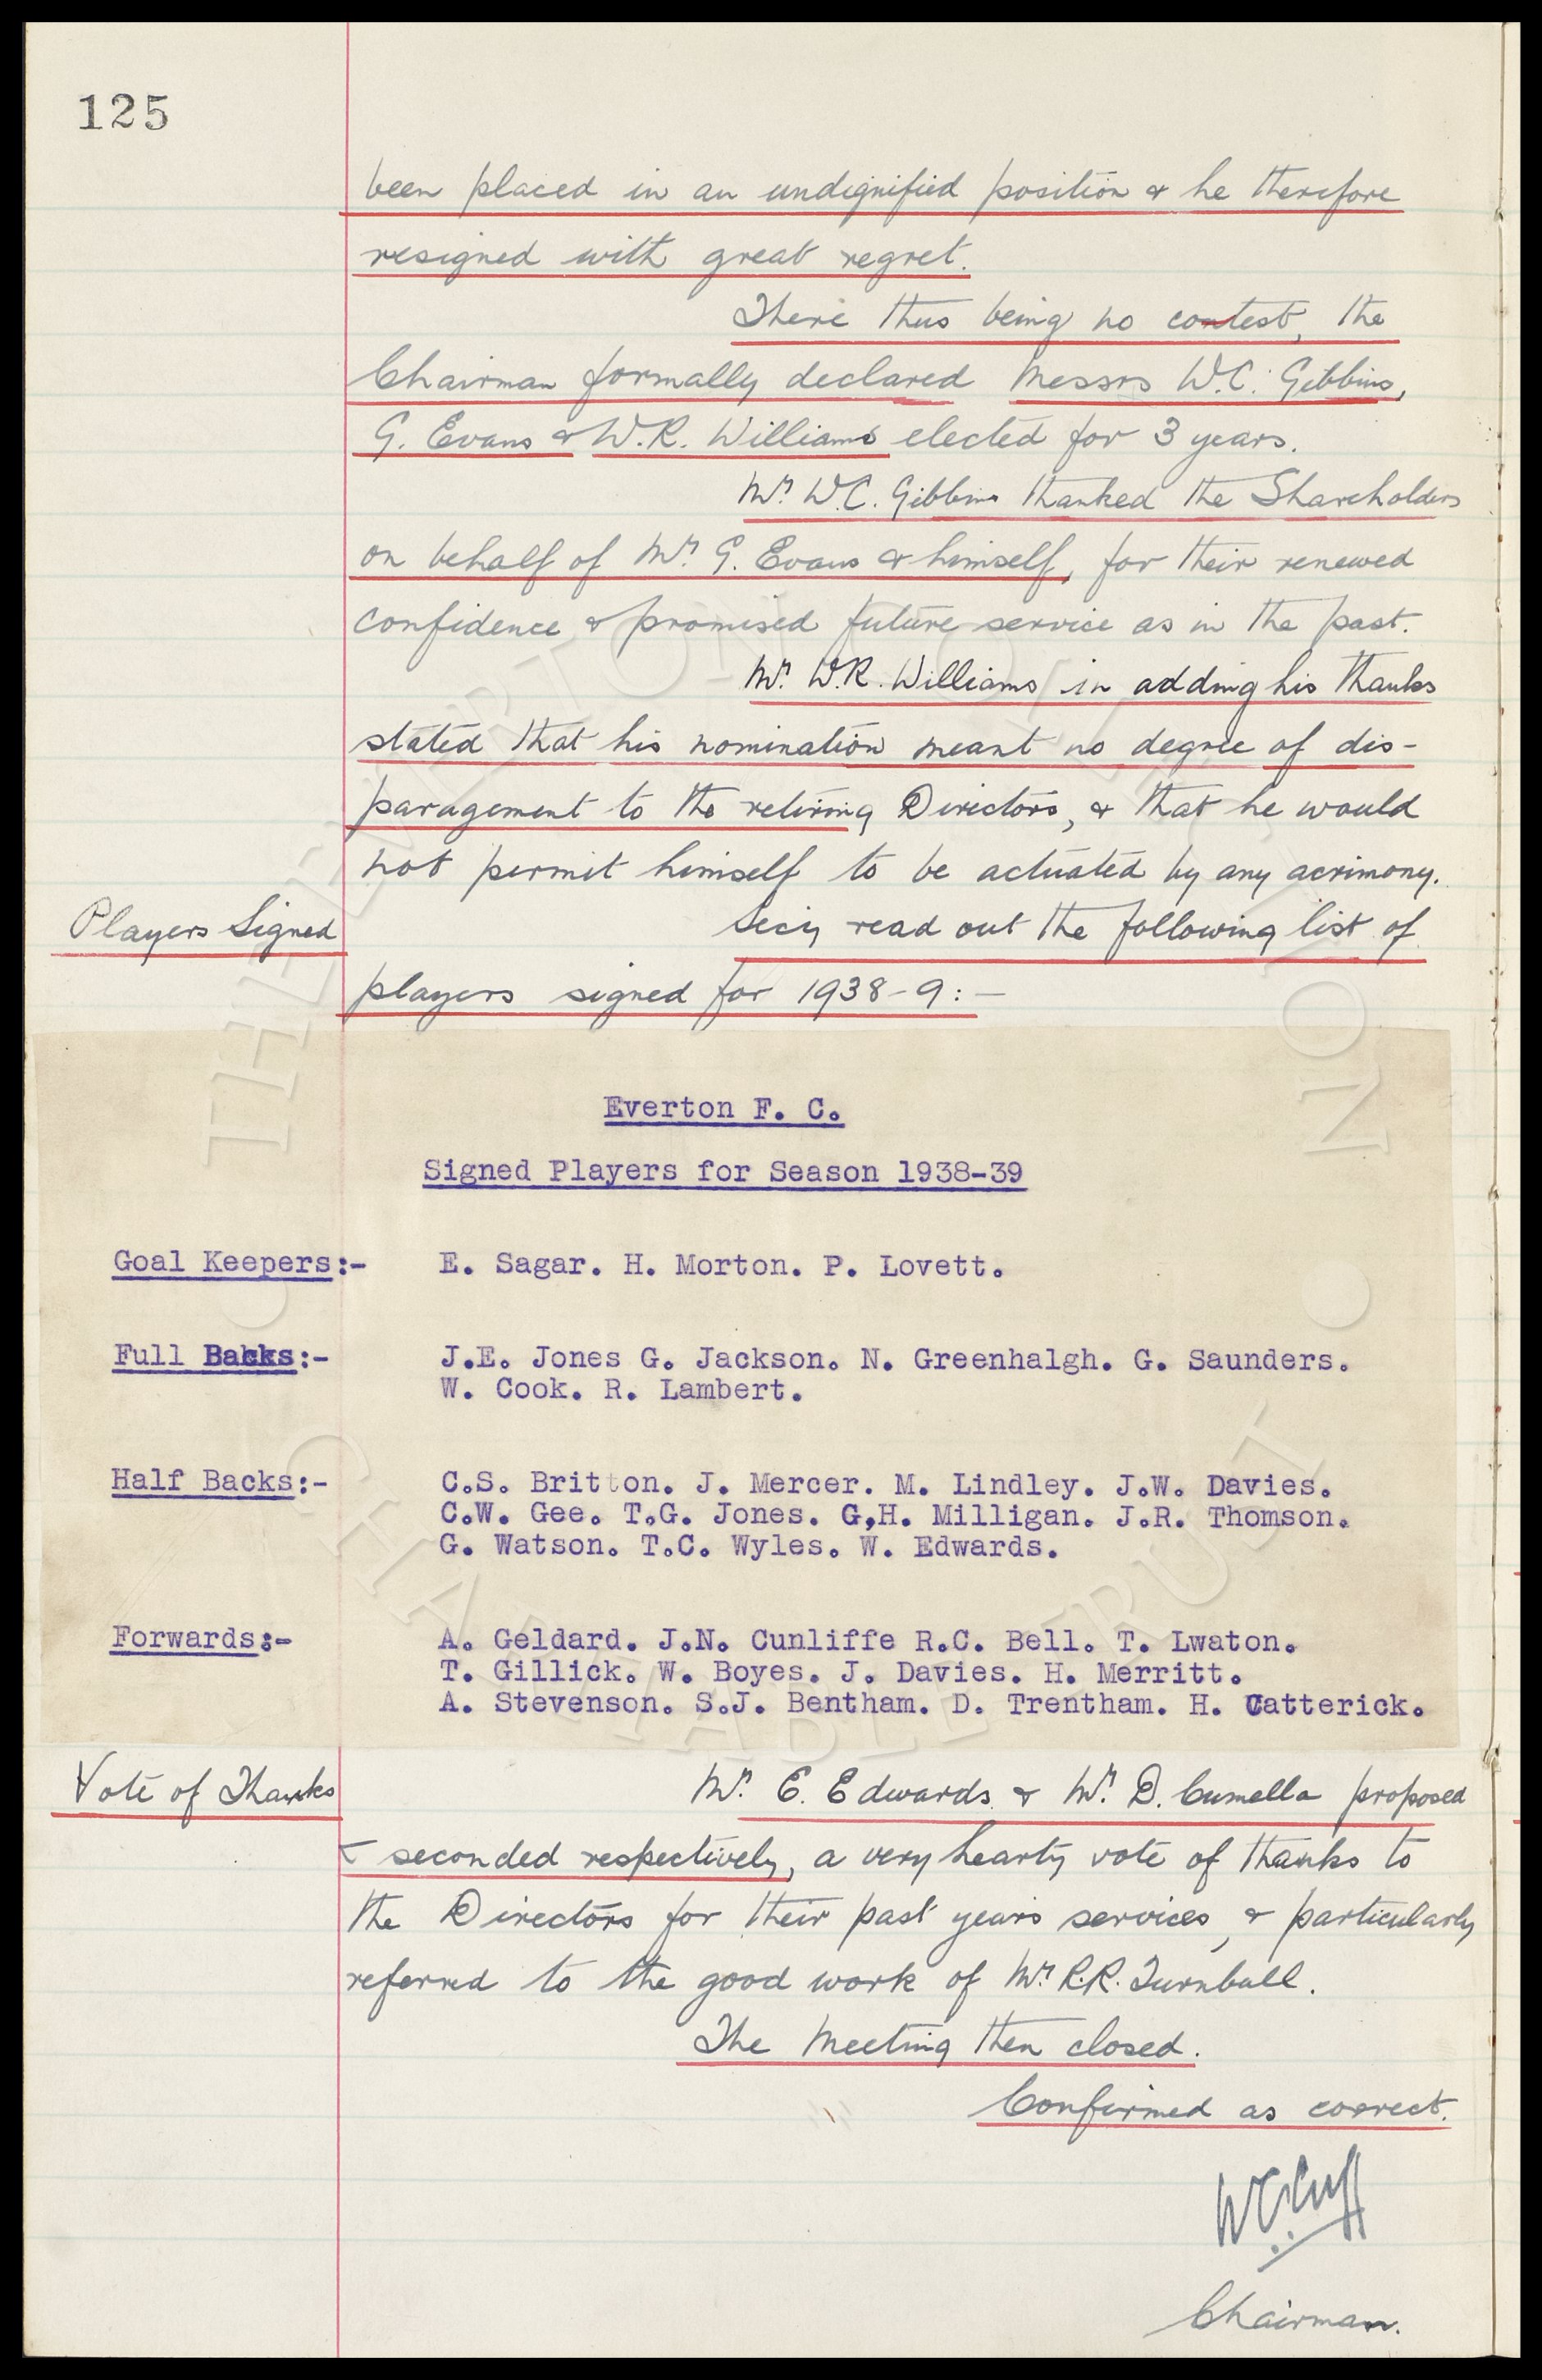 125
been placed in an undignified position & he therefore
resigned with great regret.
There thus being no contest, the
Chairman formally declared Messrs W.C. Gibbins,
G. Evans & W.R. Williams elected for 3 years.
Mr. W.C. Gibbins thanked the Shareholders
on behalf of Mr. G. Evans & himself, for their renewed
confidence & promised future service as in the past.
Mr. W.R. Williams in adding his thanks
stated that his nomination meant no degree of dis-
paragement to the retiring Directors, & that he would
not permit himself to be actuated by any acrimony.
Players Signed
Secy read out the following list of
players signed for 1938-9:-
Everton F. C.
Signed Players for Season 1938-39
Goal Keepers:- E. Sagar. H. Morton. P. Lovett.
Full Backs:- J.E. Jones G. Jackson. N. Greenhalgh. G. Saunders.
W. Cook. R. Lambert.
Half Backs:- C.S. Britton. J. Mercer. M. Lindley. J.W. Davies.
C.W. Gee. T.G. Jones. G,H. Milligan. J.R. Thomson.
G. Watson. T.C. Wyles. W. Edwards.
Forwards:- A. Geldard. J.N. Cunliffe R.C. Bell. T. Lwaton.
T. Gillick. W. Boyes. J. Davies. H. Merritt.
A. Stevenson. S.J. Bentham. D. Trentham. H. Catterick.
Vote of Thanks
Mr. E. Edwards & Mr. D. Cumella proposed
& seconded respectively, a very hearty vote of thanks to
the Directors for their past years services, & particularly
referred to the good work of Mr. R.R. Turnbull.
The Meeting then closed.
Confirmed as correct.
WCCuff
Chairman.
THE EVERTON COLLECTION CHARITABLE TRUST